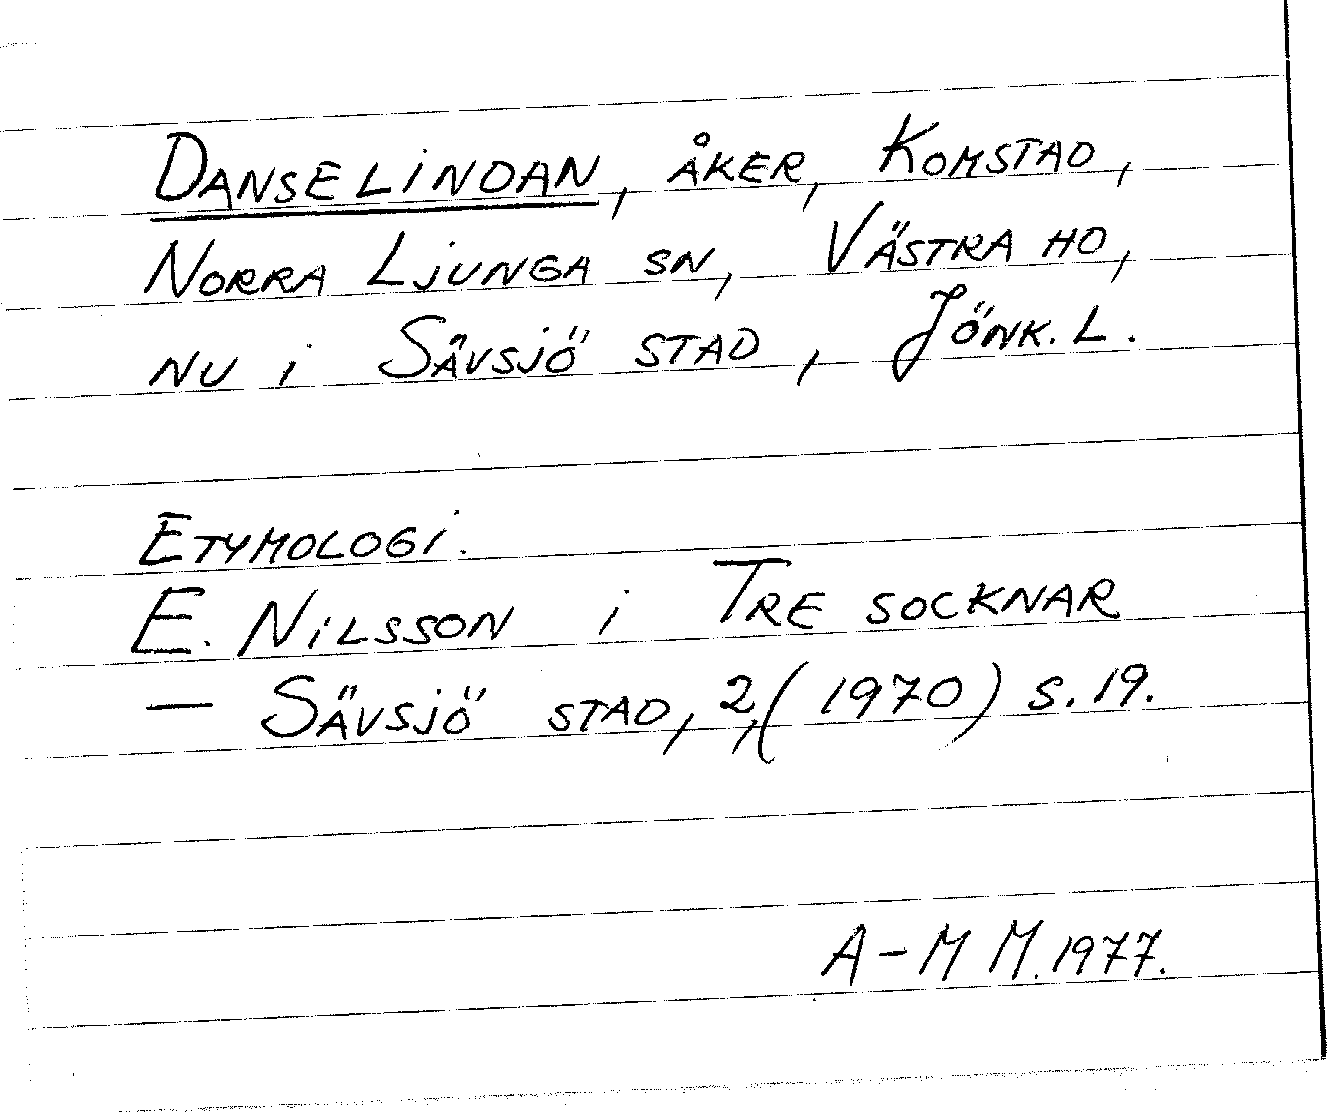 DANSELINDAN, ÅKER, KOMSTAD,
NORRA LJUNGA SN, VÄSTRA HD,
NU I SÄVSJÖ STAD, JÖNK. L.
ETYMOLOGI.
E. NILSSON I TRE SOCKNAR
— SÄVSJÖ STAD, 2, (1970) S. 19.
A-M M. 1977.